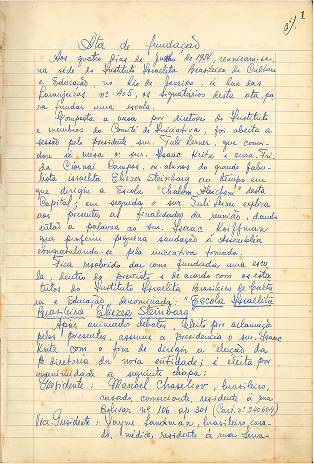 1
Ata de fundação
Aos quatro dias de de 195, reuniram-se,
na séde do Instituto Israelita Brasileiro de Cultura
e Educação, no Rio de Janeiro, à Rua das
Laranjeiras nº 405, os signatarios desta ata pa
ra fundar uma escola.
Composta a mesa por diretores do Instituto
e membros do Comité de Iniciativa, foi aberta a
sessão pelo presidente snr. Tuli Lerner, que convi-
dou à mesa o snr. Isaac Kritz e snra. Fri-
da Ciornai Campos, ex alunos do grande fabu-
lista israelita Eliezer Steinbarg ao tempo em
que dirigia a Escola "Chalom Aleichem" desta
Capital; em seguida o snr. Tuli Lerner explica
aos presentes as finalidades da reunião, dando
então a palavra ao snr. Isaac Koiffman
que proferiu pequena saudação à Assembléia
congratulando-se pela iniciativa tomada.
Fica resolvido dar como fundada uma esco
la, dentro do previsto e de acordo com os esta
tutos do Instituto Israelita Brasileiro de Cultu
ra e Educação, denominada: "Escola Israelita
Brasileira Eliezer Steinbarg"
Após animado debates, eleito por aclamação
pelos presentes, assume a presidencia o snr. Isaac
Kritz com o fim de dirigir a eleição da
diretoria da nova entidade; é eleita por
unanimidade a seguinte chapa:
Presidente: Manoel Chaseliov, brasileiro,
casado, comerciante, residente à rua
Bolivar nº 106 ap 301
Vice Presidente: Jayme Landman, brasileiro, casa-
do, médico, residente à rua